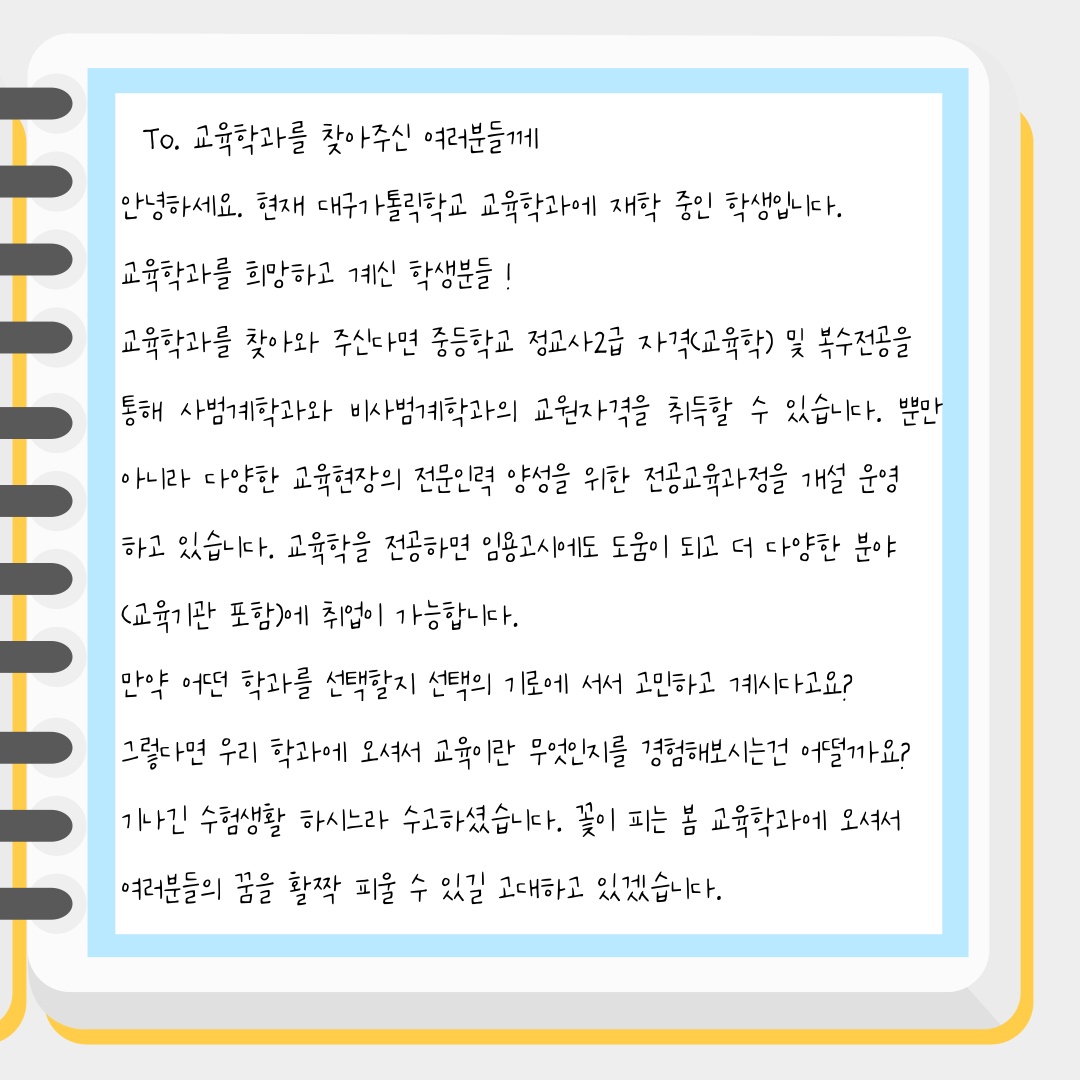 To. 교육학과를 찾아주신 여러분들께
안녕하세요. 현재 대구가톨릭학교 교육학과에 재학 중인 학생입니다.
교육학과를 희망하고 계신 학생분들 !
교육학과를 찾아와 주신다면 중등학교 정교사2급 자격(교육학) 및 복수전공을
통해 사범계학과와 비사범계학과의 교원자격을 취득할 수 있습니다. 뿐만
아니라 다양한 교육현장의 전문인력 양성을 위한 전공교육과정을 개설 운영
하고 있습니다. 교육학을 전공하면 임용고시에도 도움이 되고 더 다양한 분야
(교육기관 포함)에 취업이 가능합니다.
만약 어떤 학과를 선택할지 선택의 기로에 서서 고민하고 계시다고요?
그렇다면 우리 학과에 오셔서 교육이란 무엇인지를 경험해보시는건 어떨까요?
기나긴 수험생활 하시느라 수고하셨습니다. 꽃이 피는 봄 교육학과에 오셔서
여러분들의 꿈을 활짝 피울 수 있길 고대하고 있겠습니다.